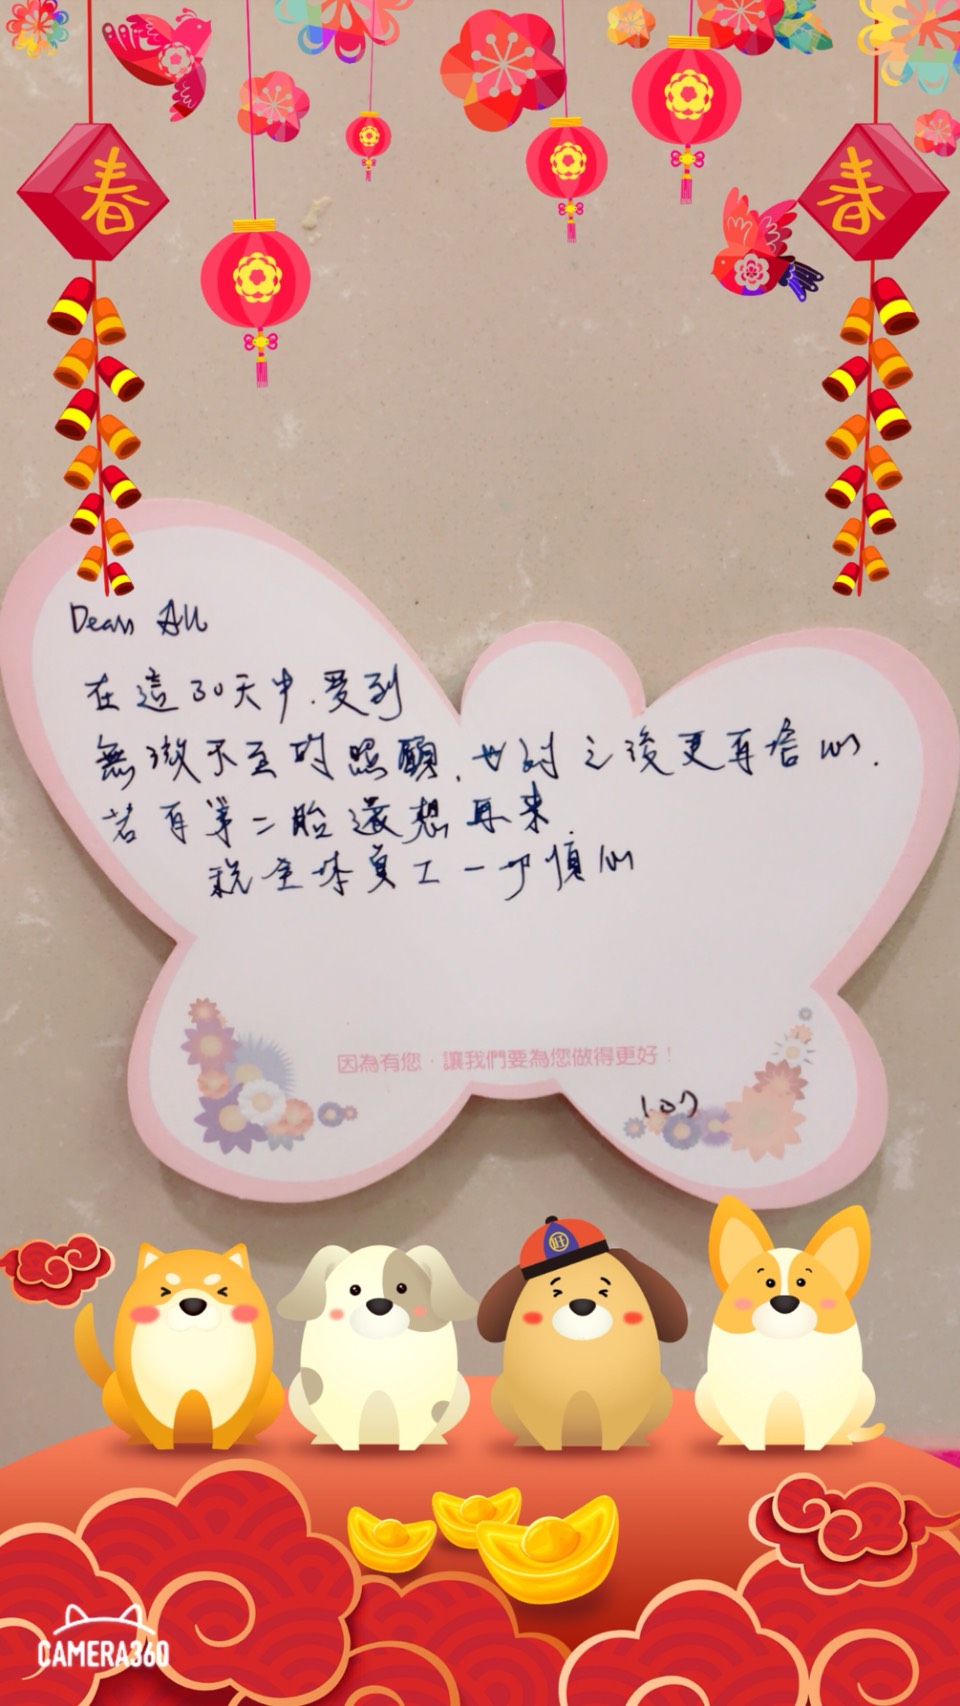 春
春
Dear All
在這30天中.受到
無微不至的照顧.也對之後更有信心.
若有第二胎還想再來.
祝全体員工一切順心
因為有您.讓我們要為您做得更好!
107
旺
CAMERA360